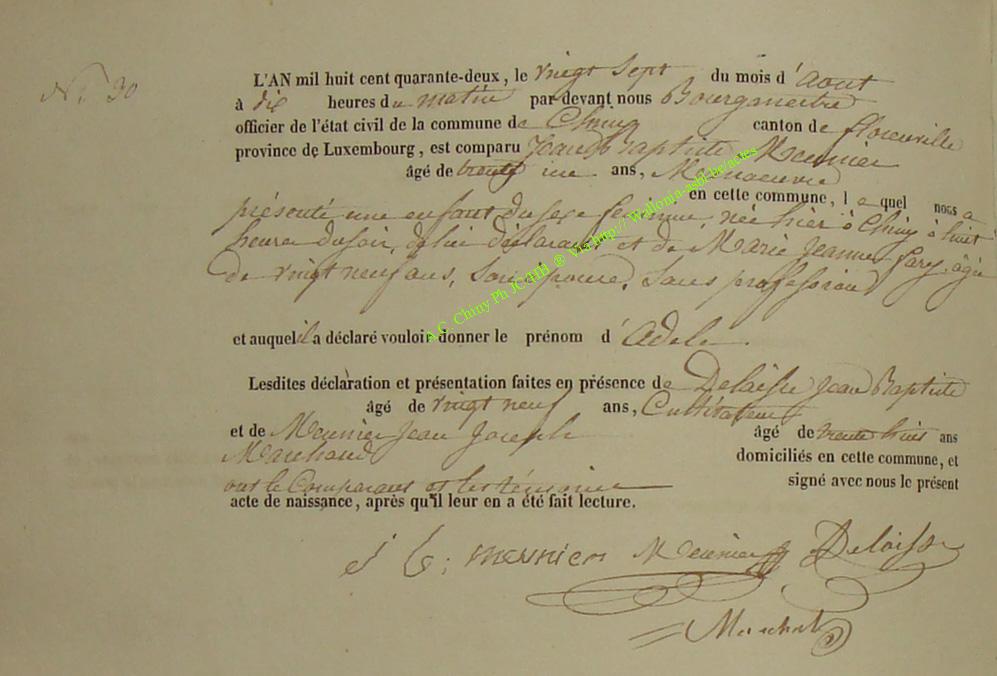 N.° 30
L'AN mil huit cent quarante-deux, le vingt sept du mois d'aout
à dix heures du matin par devant nous Bourgmestre
officier de l'état civil de la commune de Chiny canton de florenville
province de Luxembourg, est comparu Jean Baptiste Meunier
âgé de trente un ans, Manoeuvre
en cette commune, lequel nous a
présenté une enfant du sexe feminin, née hier à Chiny à huit
heures du soir, de lui déclarant et de Marie Jeanne , âgée
de vingt neuf ans, Son épouse, Sans profession
et auquel il a déclaré vouloir donner le prénom d'Adele.
Lesdites déclaration et présentation faites en présence de Delaisse Jean Baptiste
âgé de vingt neuf ans, Cultivateur
et de Meunier Jean Joseph âgé de trente huit ans
Marchand domiciliés en cette commune, et
ont le Comparant et les témoins signé avec nous le présent
acte de naissance, après qu'il leur en a été fait lecture.
J b; meunier Meunier JJ Delaisse
Marchal
A.C. Chiny Ph JC HH ® Via http:// Wallonia-asbl.be/actes